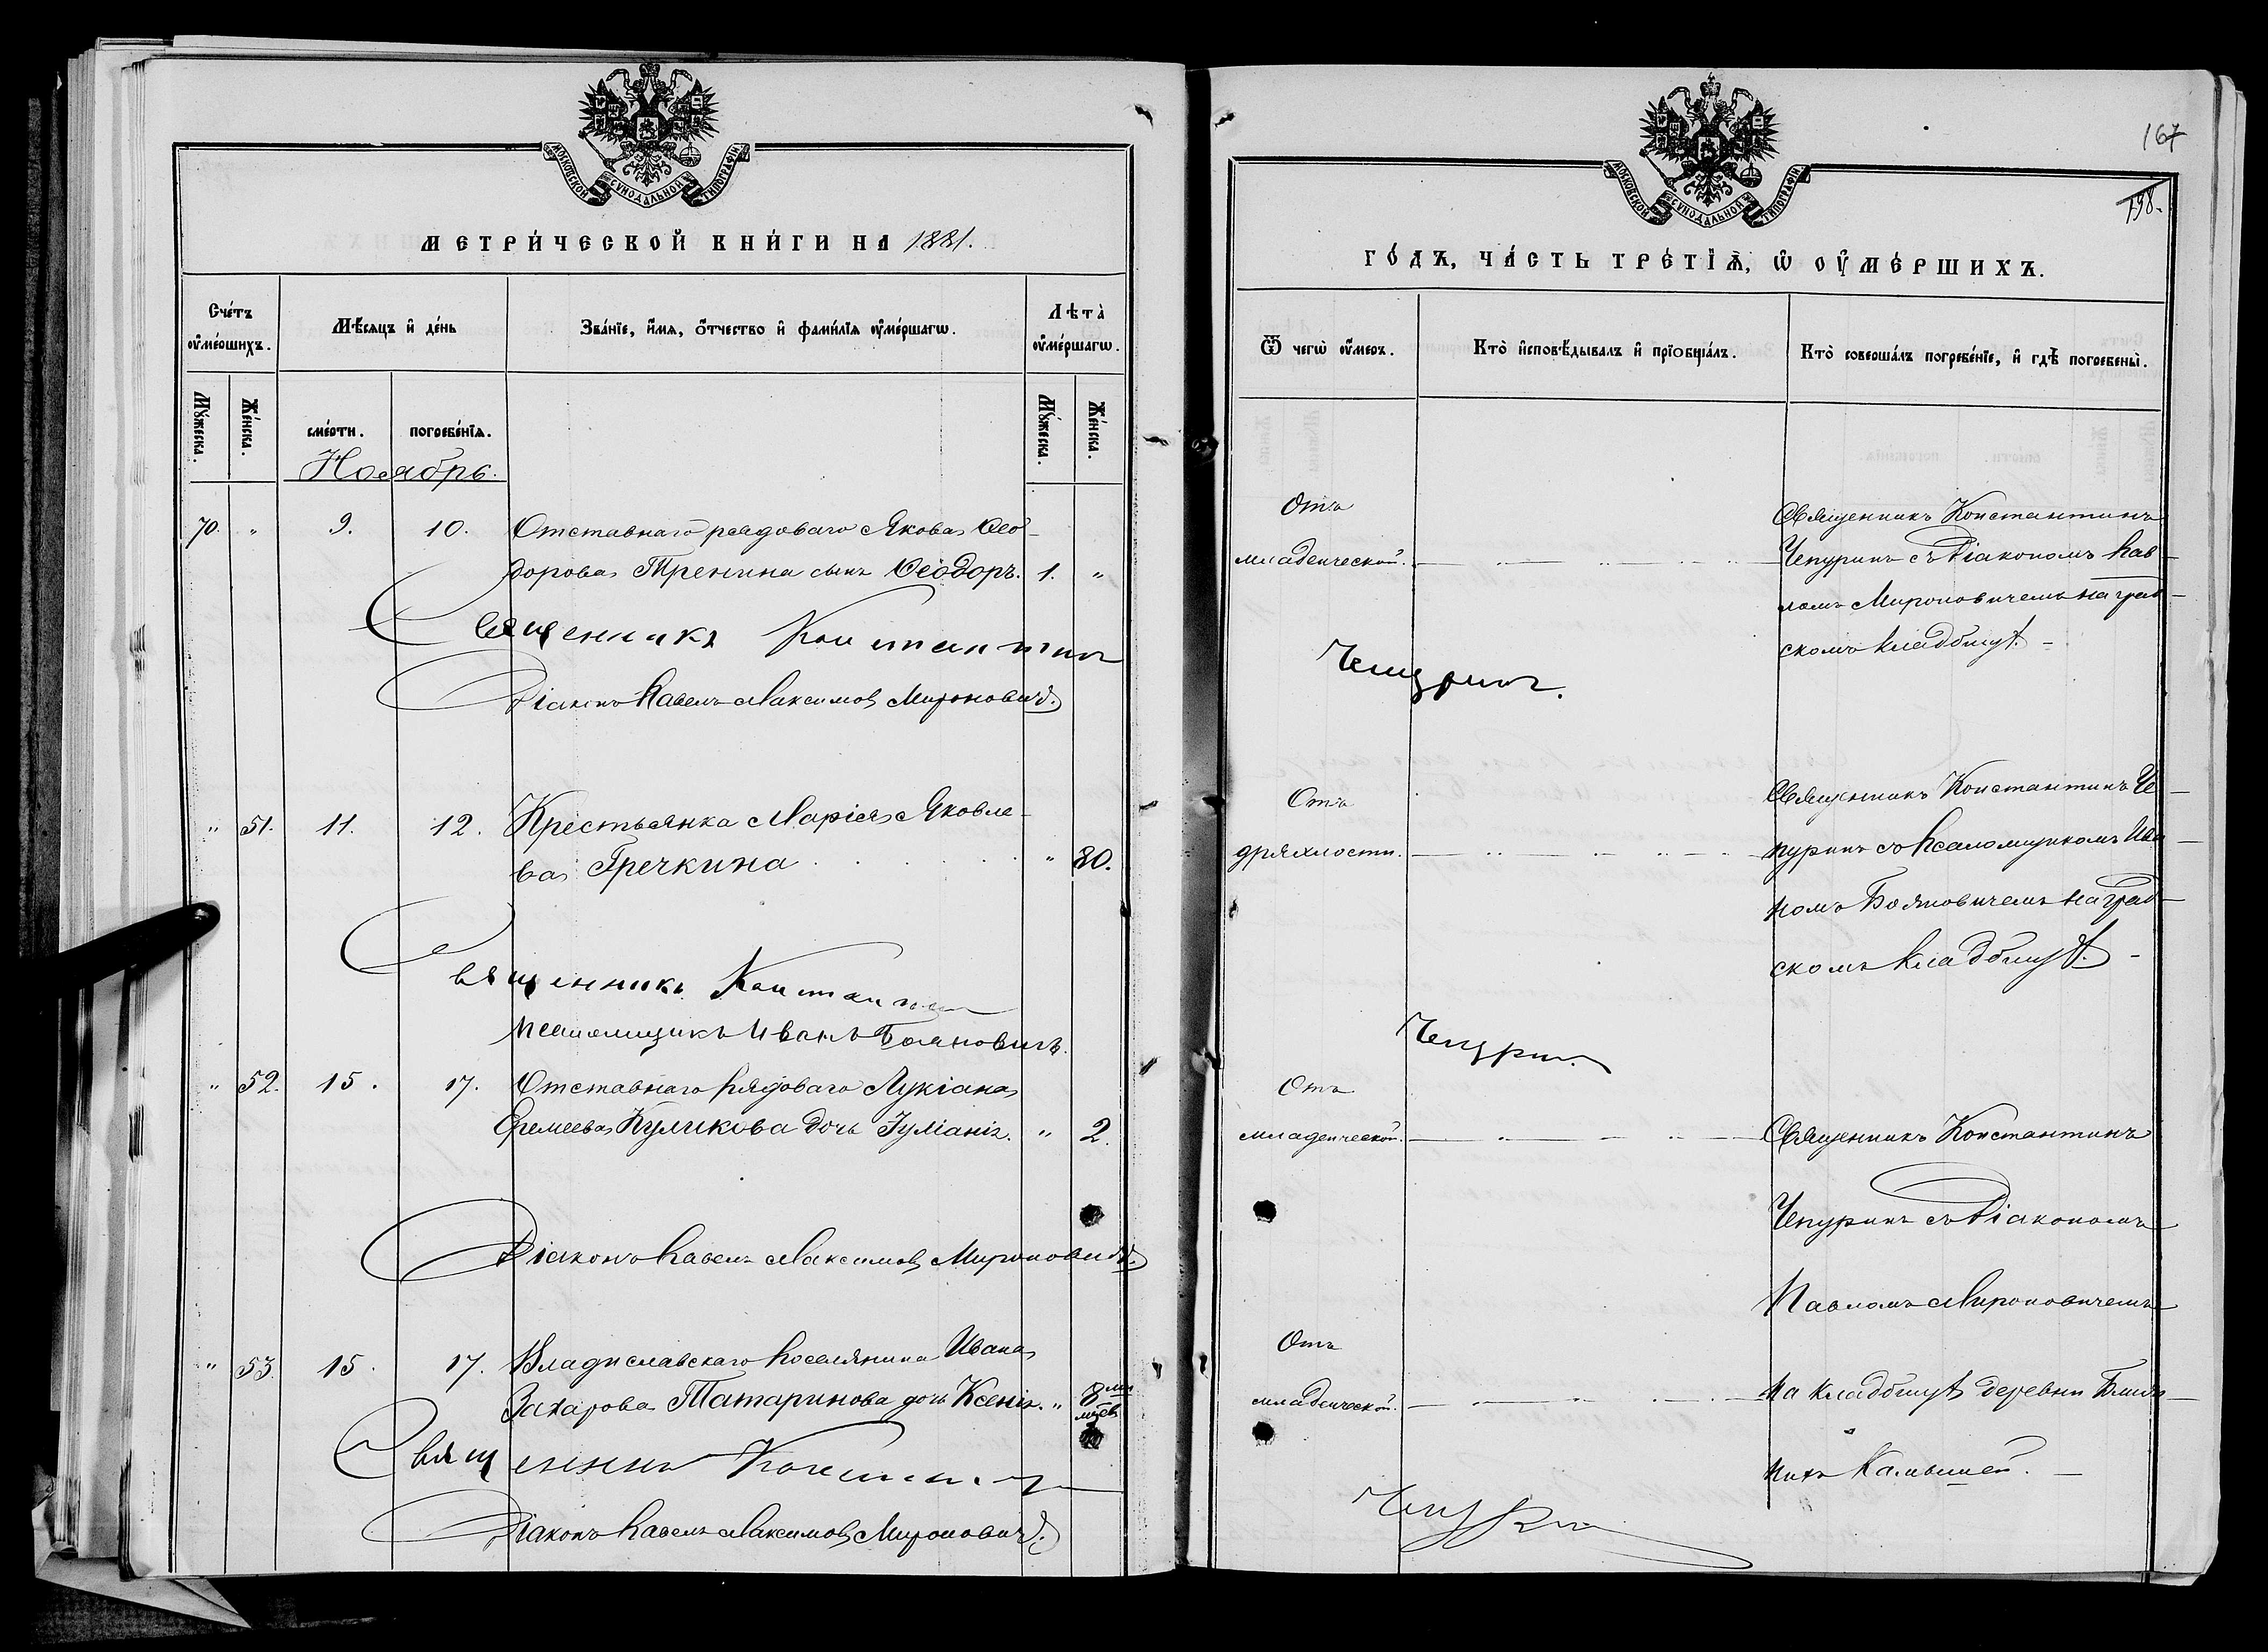 МОСКОВСКОЙ СѴНОДАЛЬНОЙ ТИПОГРАФІИ
МЕТРИ́ЧЕСКОЙ КНИ́ГИ НА 1881.
Сче́тъ ᲂу҆ме́ршихъ.
Мѣ́сяцъ и҆ де́нь
Зва́нїе, и҆́мѧ, ѻ҆́тчество и҆ фами́лїѧ ᲂу҆ме́ршагѡ.
Лѣта̀ ᲂу҆ме́ршагѡ.
Мꙋ́жеска.
Же́нска.
сме́рти.
погребе́нїѧ.
Мꙋ́жеска.
Же́нска.
Ноябрь.
70. " 9. 10. Отставнаго рядоваго Якова Ѳео-
дорова Тренина сынъ Ѳеодоръ. 1. "
Священникъ Константинъ
Діаконъ Павелъ Максимов Миронович.
" 51. 11. 12. Крестьянка Марія Яковле-
ва Гречкина " 80.
Священникъ Константин
Псаломщикъ Иванъ Бояновичъ.
" 52. 15. 17. Отставнаго рядоваго Лукіана
Еремеева Куликова дочь Іуліанія. " 2.
Діаконъ Павелъ Максимов Миронович.
" 53. 15. 17. Владиславскаго поселянина Ивана
Захарова Татаринова дочь Ксенія. " 8ми
мцев
Священник
Діаконъ Павелъ Максимов Миронович.
167
198.
МОСКОВСКОЙ СѴНОДАЛЬНОЙ ТИПОГРАФІИ
ГО́ДЪ, ЧА́СТЬ ТРЕ́ТЇѦ, Ѡ҆ ОУ҆МЕ́РШИХЪ.
Ѿ чегѡ̀ ᲂу҆́меръ.
Кто̀ и҆сповѣ́дывалъ и҆ прїобща́лъ.
Кто̀ соверша́лъ погребе́нїе, и҆ гдѣ̀ погребены̀.
Отъ
младенческой.
Священникъ Константинъ
Чепуринъ съ Діакономъ Пав-
ломъ Мироновичемъ на град-
скомъ кладбищѣ. -
Чепуринъ.
Отъ
дряхлости.
Священникъ Константинъ Че-
пуринъ съ Псаломщикомъ Ива-
номъ Бояновичемъ на град-
скомъ кладбищѣ. -
Чепурин.
Отъ
младенческой.
Священникъ Константинъ
Чепуринъ съ Діакономъ
Павломъ Мироновичемъ
Отъ
младенческой.
на кладбищѣ деревни Ближ-
нихъ Камышей. -
Чепурин